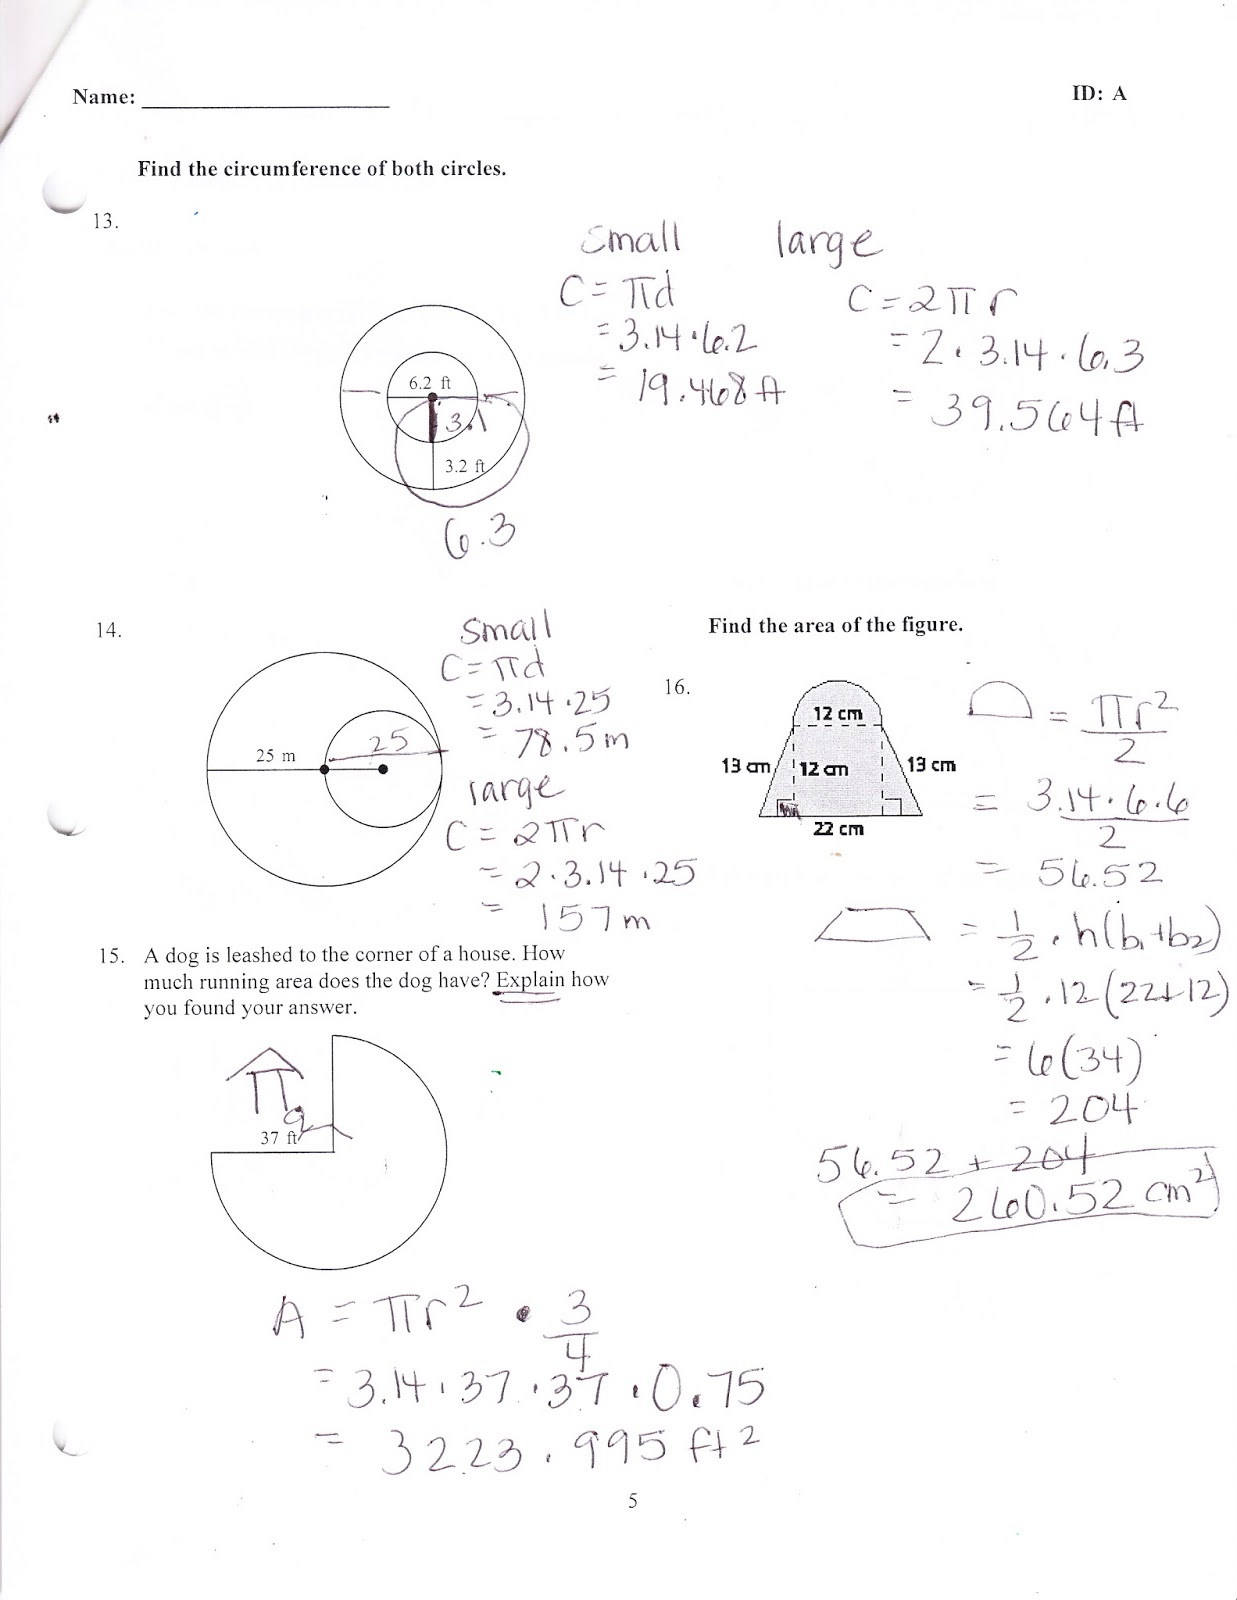 Name:
ID: A
Find the circumference of both circles.
13.
6.2 ft
3.1
3.2 ft
6.3
small
C = πd
= 3.14 · 6.2
= 19.468 ft
large
C = 2πr
= 2 · 3.14 · 6.3
= 39.564 ft
14.
25 m
25
small
C = πd
= 3.14 · 25
= 78.5 m
large
C = 2πr
= 2 · 3.14 · 25
= 157 m
15. A dog is leashed to the corner of a house. How
much running area does the dog have? Explain how
you found your answer.
37 ft
A = πr² · 3/4
= 3.14 · 37 · 37 · 0.75
= 3223.995 ft²
Find the area of the figure.
16.
12 cm
13 cm
12 cm
13 cm
22 cm
= πr²/2
= 3.14 · 6 · 6/2
= 56.52
= 1/2 · h(b₁+b₂)
= 1/2 · 12(22+12)
= 6(34)
= 204
56.52 + 204
= 260.52 cm²
5